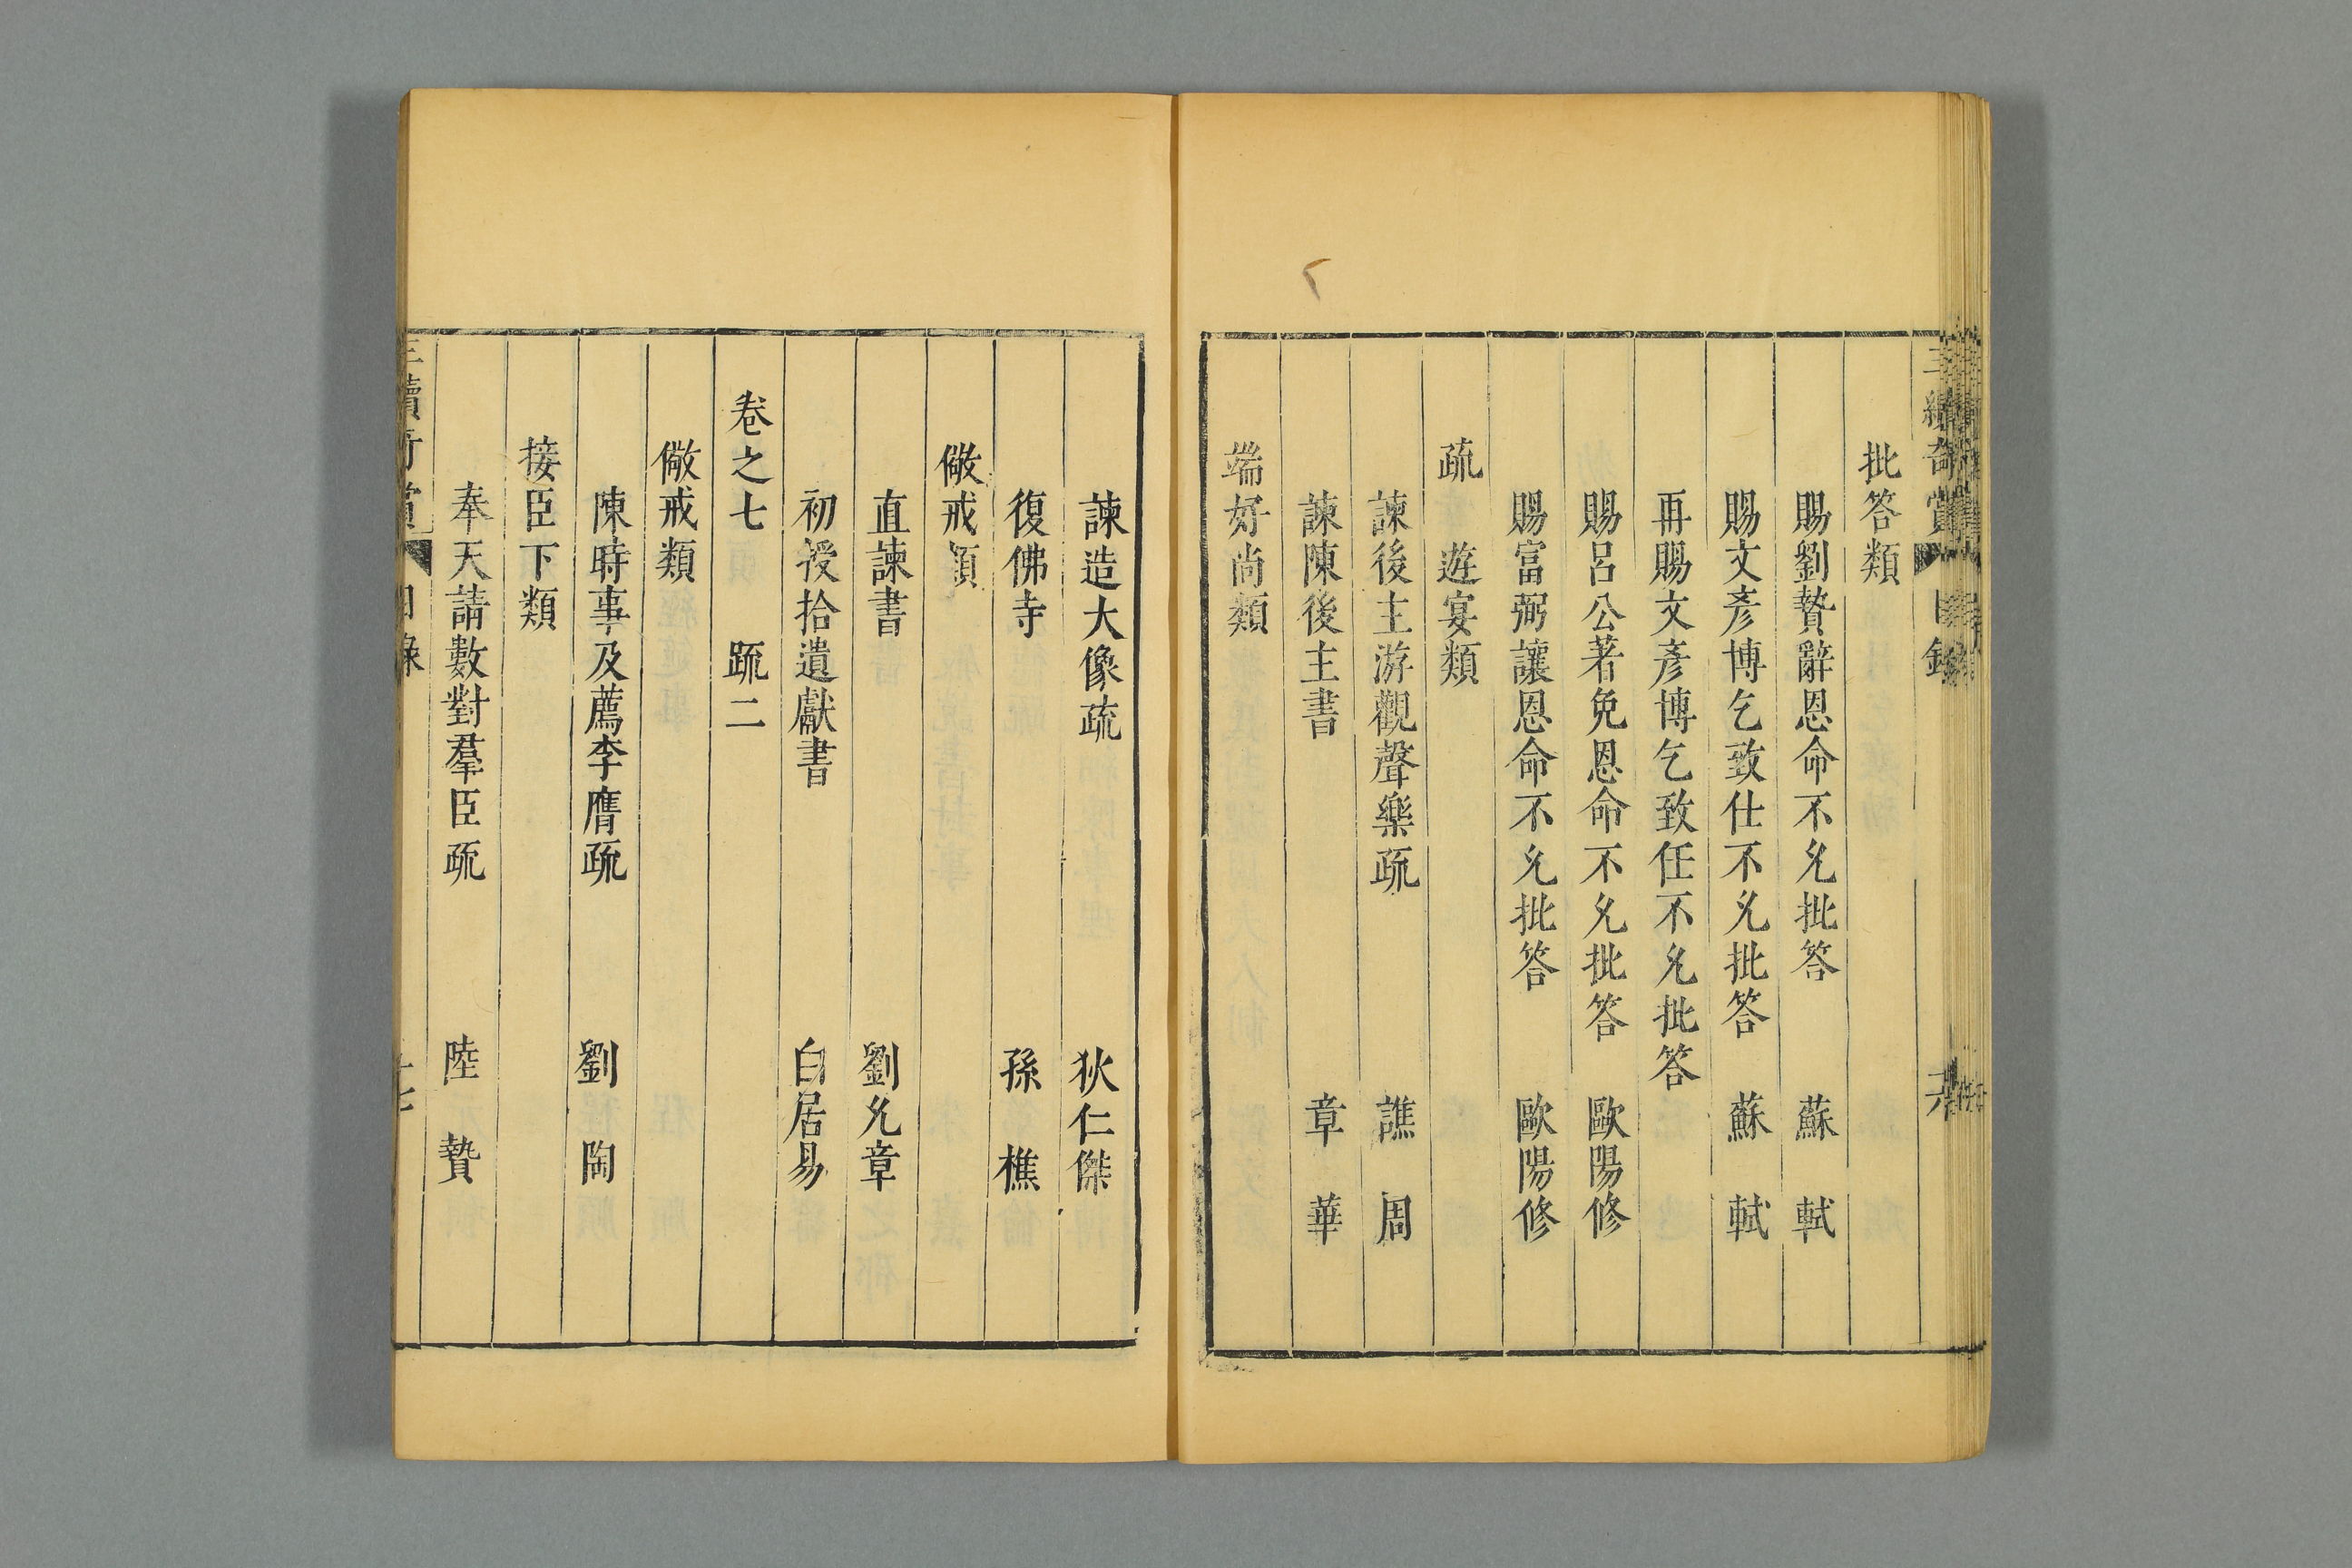 三續奇賞 目錄 六
批答類
賜劉贄辭恩命不允批答 蘇軾
賜文彥博乞致仕不允批答 蘇軾
再賜文彥博乞致任不允批答
賜呂公著免恩命不允批答 歐陽修
賜富弼讓恩命不允批答 歐陽修
疏 遊宴類
諫後主游觀聲樂疏 譙周
諫陳後主書 章華
端好尚類
諫造大像疏 狄仁傑
復佛寺 孫樵
儆戒類
直諫書 劉允章
初授拾遺獻書 白居易
卷之七 疏二
儆戒類
陳時事及薦李膺疏 劉陶
接臣下類
奉天請數對羣臣疏 陸贄
三續奇賞 目錄